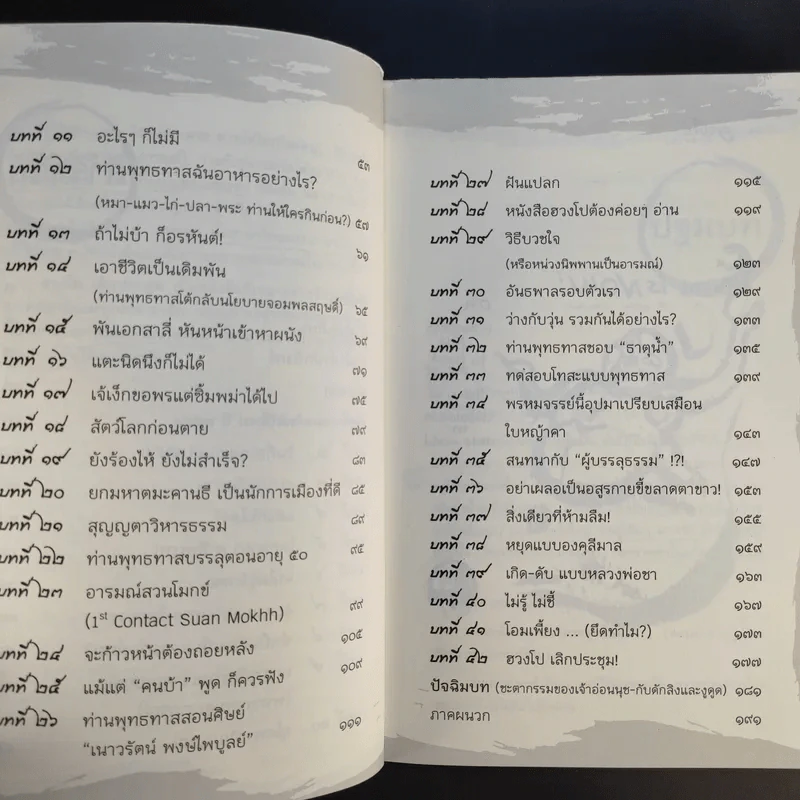 บทที่ ๑๑ อะไรๆ ก็ไม่มี ๕๓
บทที่ ๑๒ ท่านพุทธทาสฉันอาหารอย่างไร?
(หมา-แมว-ไก่-ปลา-พระ ท่านให้ใครกินก่อน?) ๕๗
บทที่ ๑๓ ถ้าไม่บ้า ก็อรหันต์! ๖๑
บทที่ ๑๔ เอาชีวิตเป็นเดิมพัน
(ท่านพุทธทาสโต้กลับนโยบายจอมพลสฤษดิ์) ๖๕
บทที่ ๑๕ พันเอกสาลี่ หันหน้าเข้าหาผนัง ๖๙
บทที่ ๑๖ แตะนิดนึงก็ไม่ได้ ๗๑
บทที่ ๑๗ เจ้เง็กขอพรแต่ซิ้มพม่าได้ไป ๗๕
บทที่ ๑๘ สัตว์โลกก่อนตาย ๗๙
บทที่ ๑๙ ยังร้องไห้ ยังไม่สำเร็จ? ๘๓
บทที่ ๒๐ ยกมหาตมะคานธี เป็นนักการเมืองที่ดี ๘๕
บทที่ ๒๑ สุญญตาวิหารธรรม ๘๙
บทที่ ๒๒ ท่านพุทธทาสบรรลุตอนอายุ ๕๐ ๙๕
บทที่ ๒๓ อารมณ์สวนโมกข์
(1st Contact Suan Mokhh) ๙๙
บทที่ ๒๔ จะก้าวหน้าต้องถอยหลัง ๑๐๕
บทที่ ๒๕ แม้แต่ “คนบ้า” พูด ก็ควรฟัง ๑๐๙
บทที่ ๒๖ ท่านพุทธทาสสอนศิษย์
“เนาวรัตน์ พงษ์ไพบูลย์” ๑๑๑
บทที่ ๒๗ ฝันแปลก ๑๑๕
บทที่ ๒๘ หนังสือฮวงโปต้องค่อยๆ อ่าน ๑๑๙
บทที่ ๒๙ วิธีบวชใจ
(หรือหน่วงนิพพานเป็นอารมณ์) ๑๒๓
บทที่ ๓๐ อันธพาลรอบตัวเรา ๑๒๙
บทที่ ๓๑ ว่างกับวุ่น รวมกันได้อย่างไร? ๑๓๓
บทที่ ๓๒ ท่านพุทธทาสชอบ “ธาตุน้ำ” ๑๓๕
บทที่ ๓๓ ทดสอบโทสะแบบพุทธทาส ๑๓๙
บทที่ ๓๔ พรหมจรรย์นี้อุปมาเปรียบเสมือน
ใบหญ้าคา ๑๔๓
บทที่ ๓๕ สนทนากับ “ผู้บรรลุธรรม” !?! ๑๔๗
บทที่ ๓๖ อย่าเผลอเป็นอสูรกายขี้ขลาดตาขาว! ๑๕๓
บทที่ ๓๗ สิ่งเดียวที่ห้ามลืม! ๑๕๕
บทที่ ๓๘ หยุดแบบองคุลีมาล ๑๕๙
บทที่ ๓๙ เกิด-ดับ แบบหลวงพ่อชา ๑๖๓
บทที่ ๔๐ ไม่รู้ ไม่ชี้ ๑๖๗
บทที่ ๔๑ โอมเพี้ยง ... (ยึดทำไม?) ๑๗๓
บทที่ ๔๒ ฮวงโป เลิกประชุม! ๑๗๗
ปัจฉิมบท (ชะตากรรมของเจ้าอ่อนนุช-กับดักลิงและงูดูด) ๑๘๑
ภาคผนวก ๑๙๑